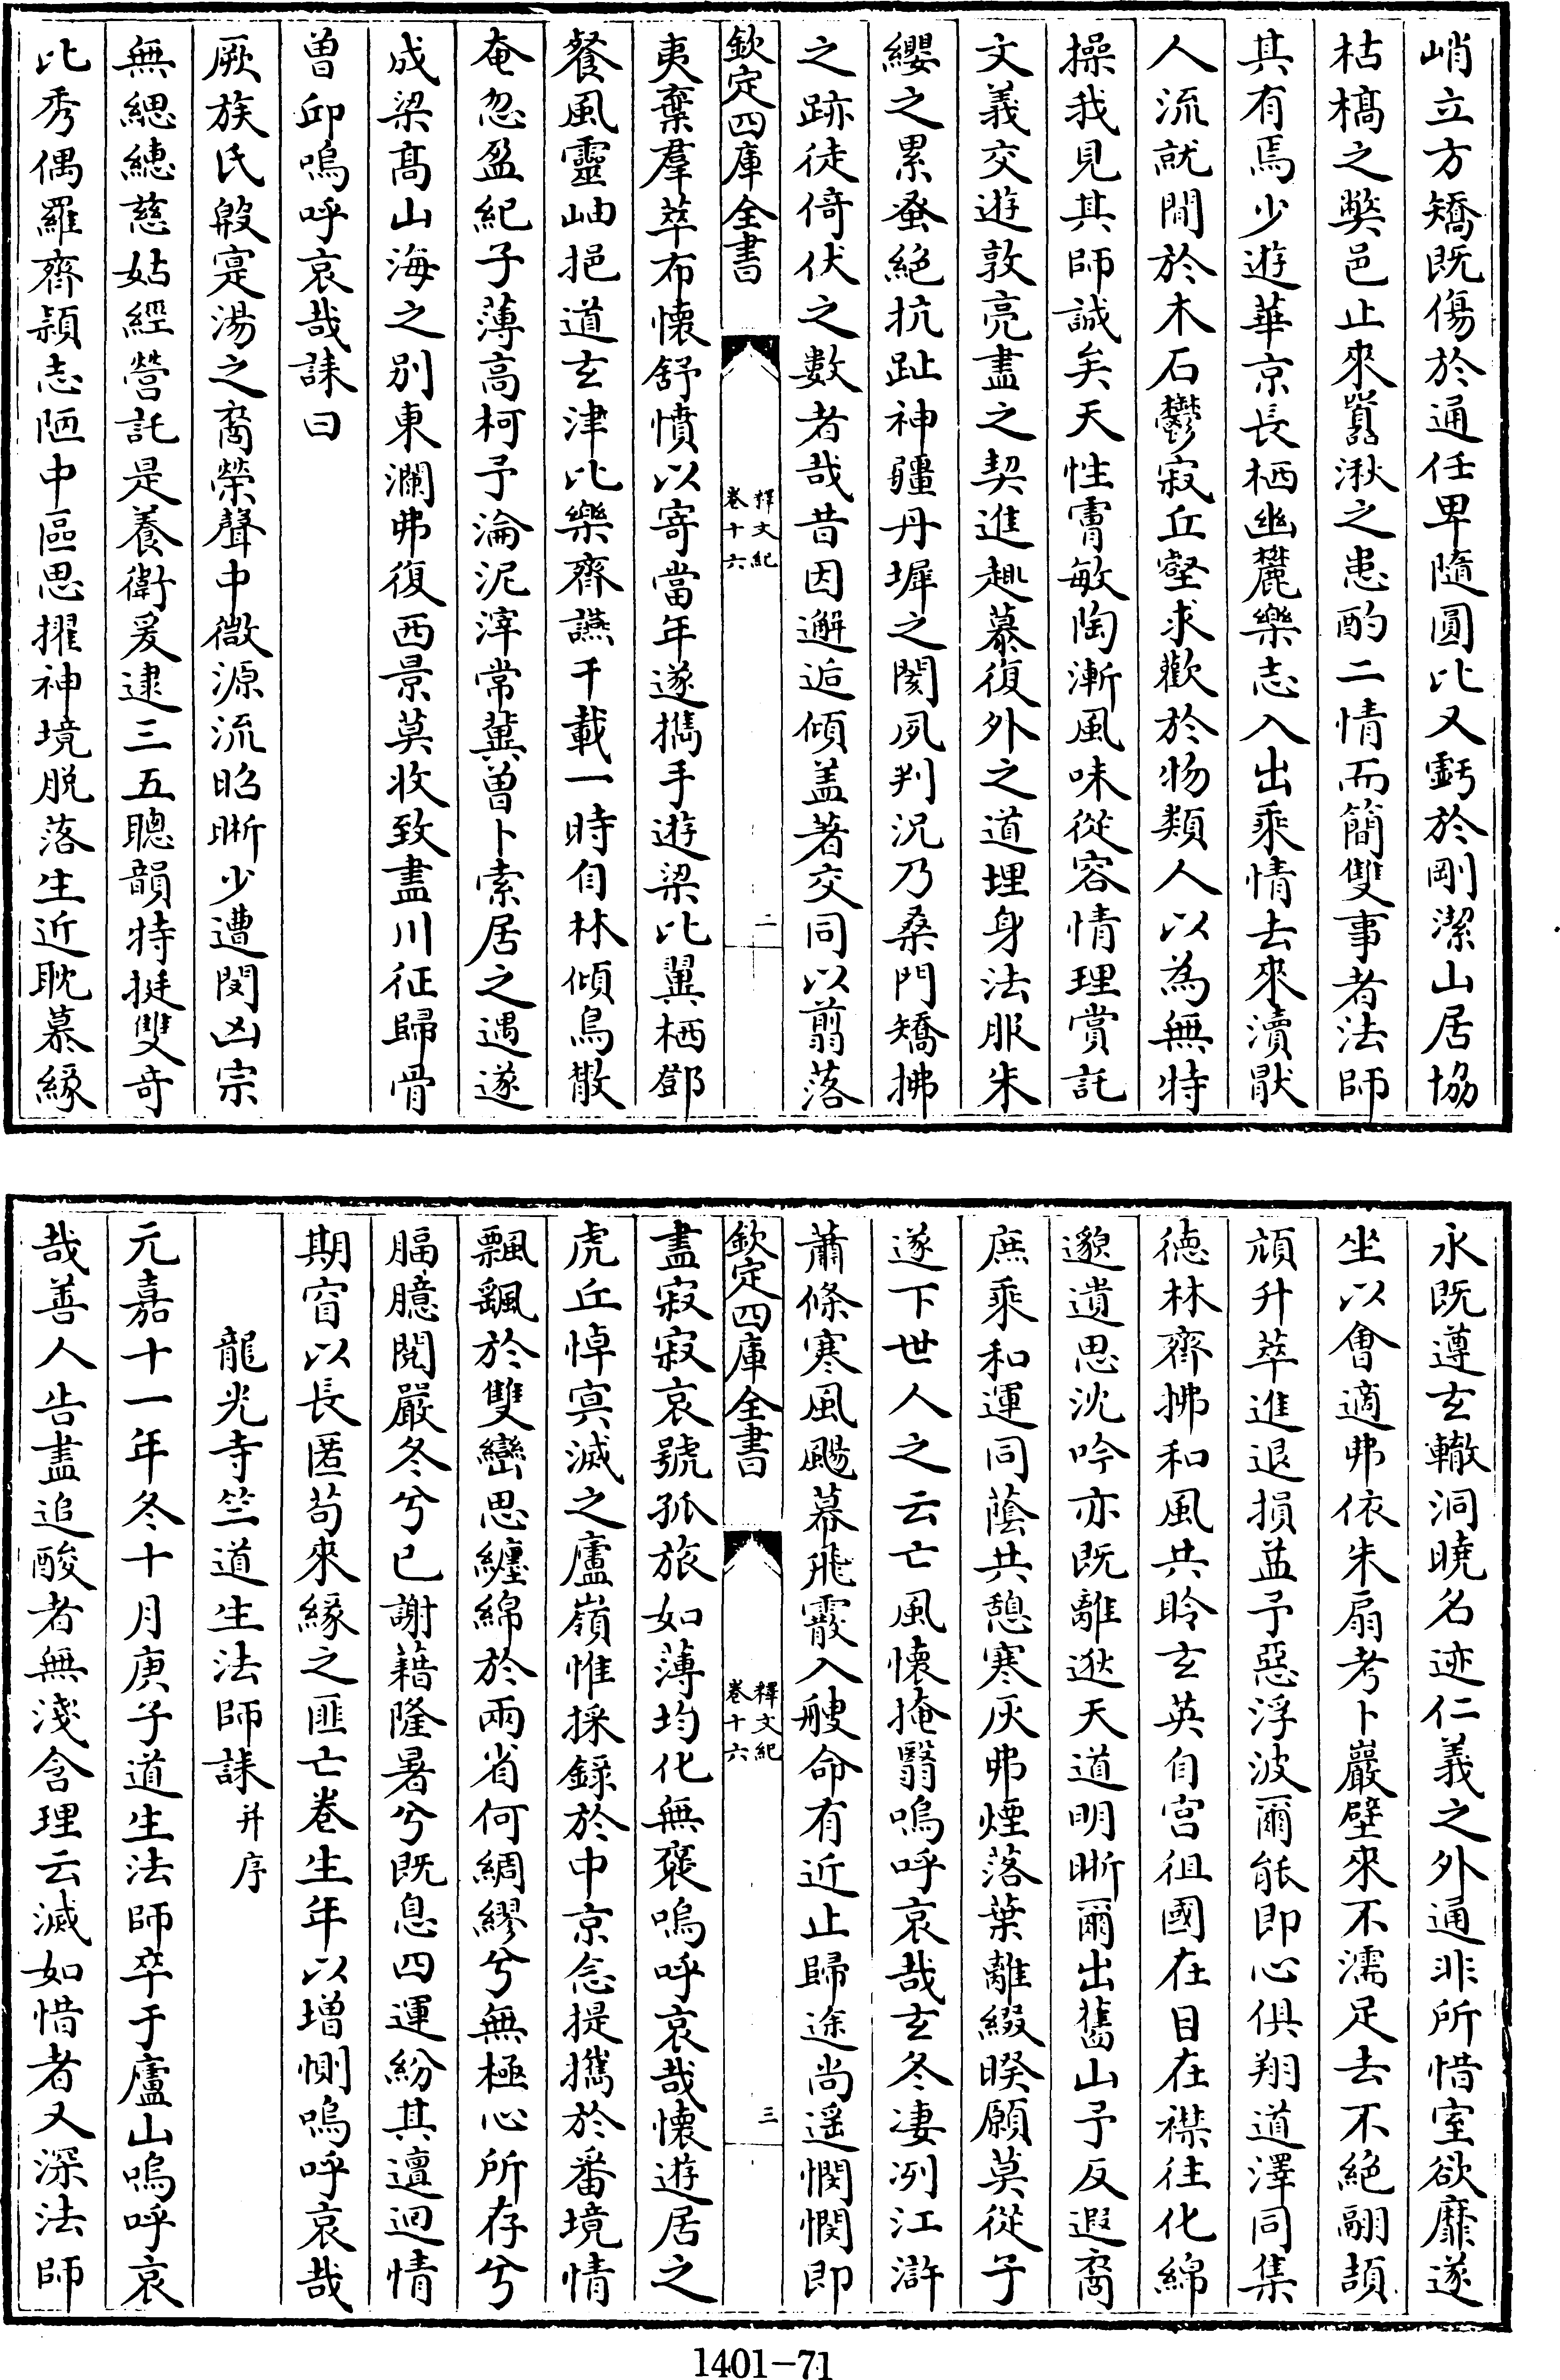 峭立方矯既傷於通任卑隨圓比又虧於剛潔山居協
枯槁之弊邑止來囂湫之患酌二情而簡雙事者法師
其有焉少遊華京長栖幽麓樂志入出乘情去來瀆猒
人流就閒於木石鬱寂丘壑求歡於物類人以為無特
操我見其師誠矣天性膚敏陶漸風味從容情理賞託
文義交遊敦亮盡之契進趣慕復外之道埋身法服朱
纓之累蚤絕抗趾神疆丹墀之閡夙判況乃桑門矯拂
之跡徒倚伏之數者哉昔因邂逅傾盖著交同以翦落
欽定四庫全書
釋文紀
卷十六
二
夷棄羣萃布懷舒憤以寄當年遂擕手遊梁比翼栖鄧
餐風靈岫挹道玄津比樂齊讌千載一時自林傾鳥散
奄忽盈紀子薄高柯予淪泥滓常冀曾卜索居之遇遂
成梁髙山海之别東瀾弗復西景莫收致盡川征歸骨
曽邱嗚呼哀哉誄曰
厥族氏殷寔湯之裔榮聲中微源流昭晰少遭閔凶宗
無緦繐慈姑經營託是養衛爰逮三五聰韻特挺雙竒
比秀偶羅齊潁志陋中區思擢神境脱落生近耽慕緣
永既遵玄轍洞曉名迹仁義之外通非所惜室欲靡遂
坐以會適弗依朱扇考卜巖壁來不濡足去不絕翮頡
頏升萃進退損益予惡浮波爾能即心俱翔道澤同集
德林齊拂和風共聆玄英自宫徂國在目在襟往化綿
邈遺思沈吟亦既離逖天道明晰爾出舊山予反遐裔
庶乘和運同蔭共憩寒灰弗煙落葉離綴暌願莫從子
遂下世人之云亡風懷掩翳嗚呼哀哉玄冬淒冽江滸
蕭條寒風颺幕飛霰入艘命有近止歸途尚遥憫憫即
欽定四庫全書
釋文紀
卷十六
三
盡寂寂哀號孤旅如薄均化無褒嗚呼哀哉懷遊居之
虎丘悼㝠滅之廬嶺惟採録於中京念提擕於番境情
飄颻於雙巒思纏綿於兩省何綢繆兮無極心所存兮
腷臆閱嚴冬兮已謝藉隆暑兮既息四運紛其邅迴情
期窅以長匿苟來緣之匪亡眷生年以增惻嗚呼哀哉
龍光寺竺道生法師誄并序
元嘉十一年冬十月庚子道生法師卒于廬山嗚呼哀
哉善人告盡追酸者無淺含理云滅如惜者又深法師
1401-71